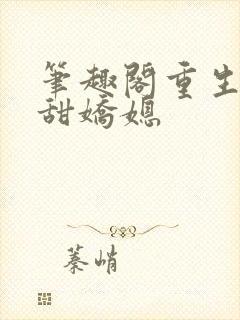 筆趣閣重生
甜嬌媳
蓁峭